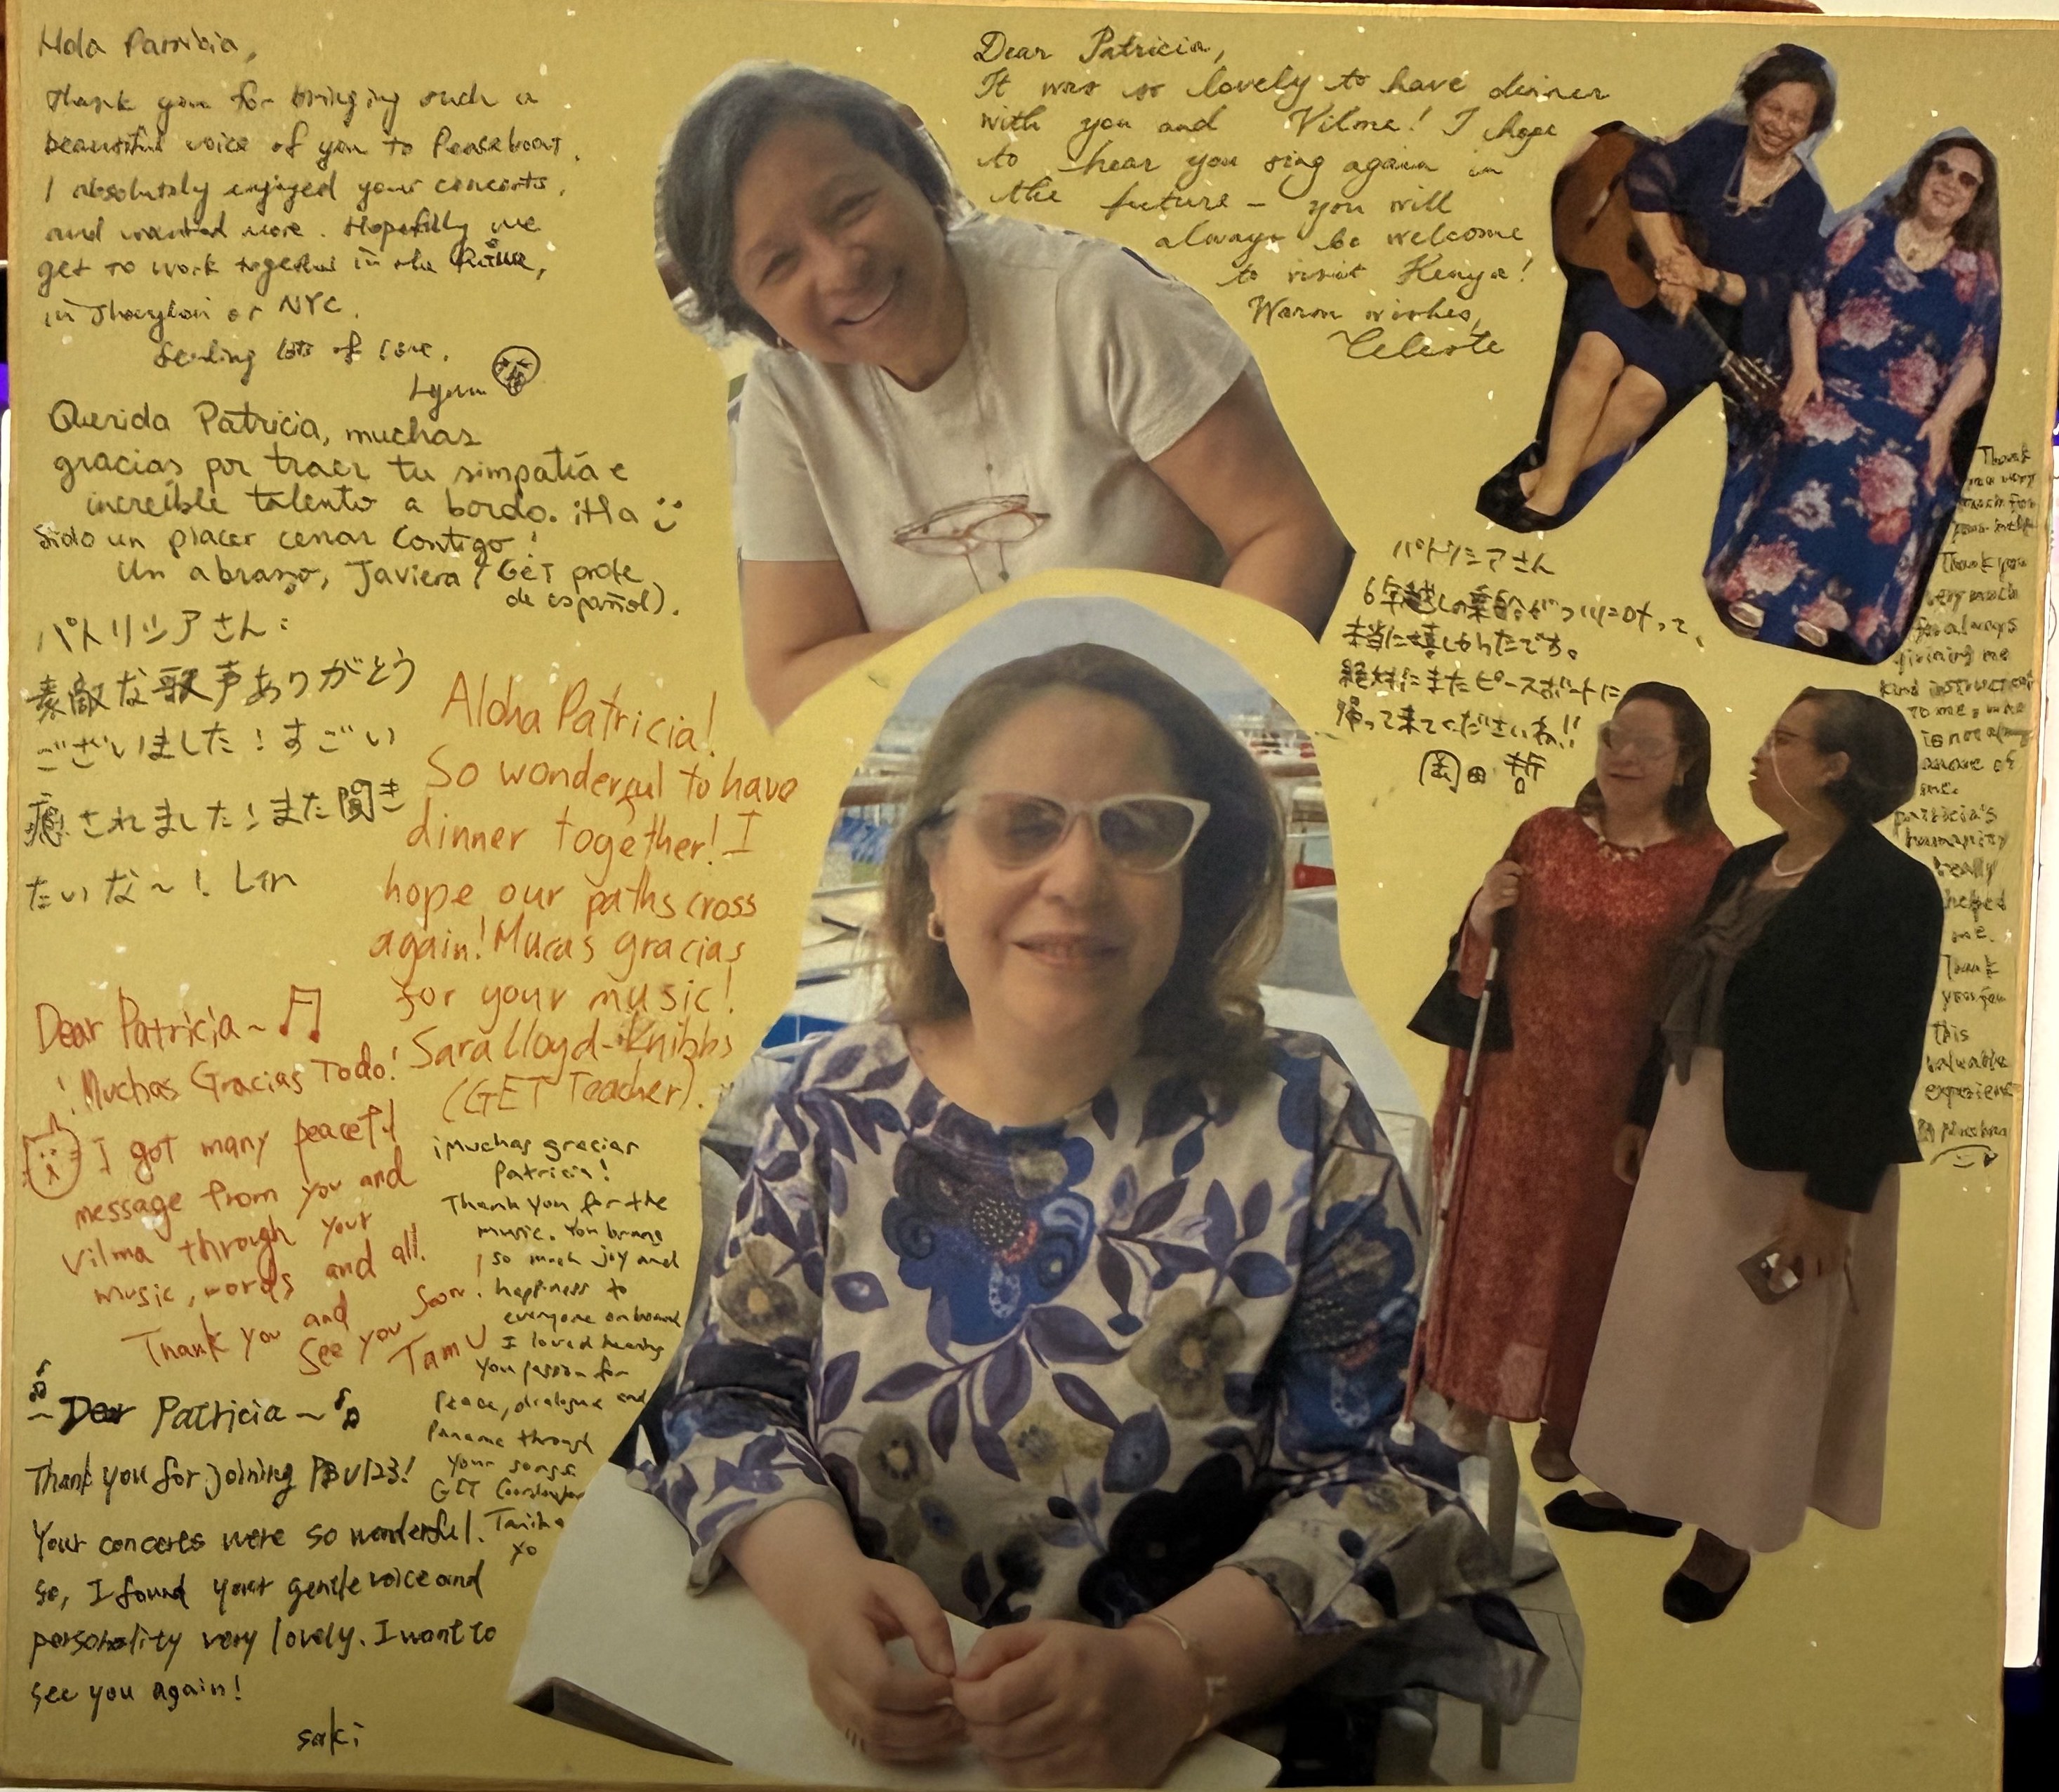 Hola Patricia,
Thank you for bringing such a
beautiful voice of you to Peaceboat.
I absolutely enjoyed your concerts,
and wanted more. Hopefully we
get to work together in the future,
in or NYC.
Sending lots of love.
Querida Patricia, muchas
gracias por traer tu simpatía e
increíble talento a bordo. ¡Ha
sido un placer cenar contigo!
Un abrazo, Javiera (GET profe
de español).
パトリシアさん:
素敵な歌声ありがとう
ございました！すごい
癒されました！また聞き
たいな〜！ Lin
Aloha Patricia!
So wonderful to have
dinner together! I
hope our paths cross
again! Mucas gracias
for your music!
Sara Lloyd-Knibbs
(GET Teacher).
Dear Patricia~
¡Muchas Gracias Todo!
I got many peaceful
message from you and
Vilma through your
music, words and all.
Thank you and
See you soon!
Tamu
¡Muchas gracias
Patricia!
Thank you for the
music. You bring
so much joy and
happiness to
everyone onboard
I loved hearing
you passion for
Peace, dialogue and
Panama through
your songs
GET Coordinator
xo
~Dear Patricia~
Thank you for joining PBV123!
Your concerts were so wonderful.
So, I found your gentle voice and
personality very lovely. I want to
see you again!
saki
Dear Patricia,
It was so lovely to have dinner
with you and Vilma! I hope
to hear you sing again in
the future - you will
always be welcome
to visit Kenya!
Warm wishes,
Celeste
パトリシアさん
6年越しの乗船がついに叶って、
本当に嬉しかったです。
絶対にまたピースボートに
帰って来てくださいね!!
岡田 哲
Thank
you very
much for
Thank you
very much
for always
giving me
kind instruction
to me, who
is not
aware of
me.
patricia's
humanity
really
helped
me.
Thank
you for
this
valuable
experience